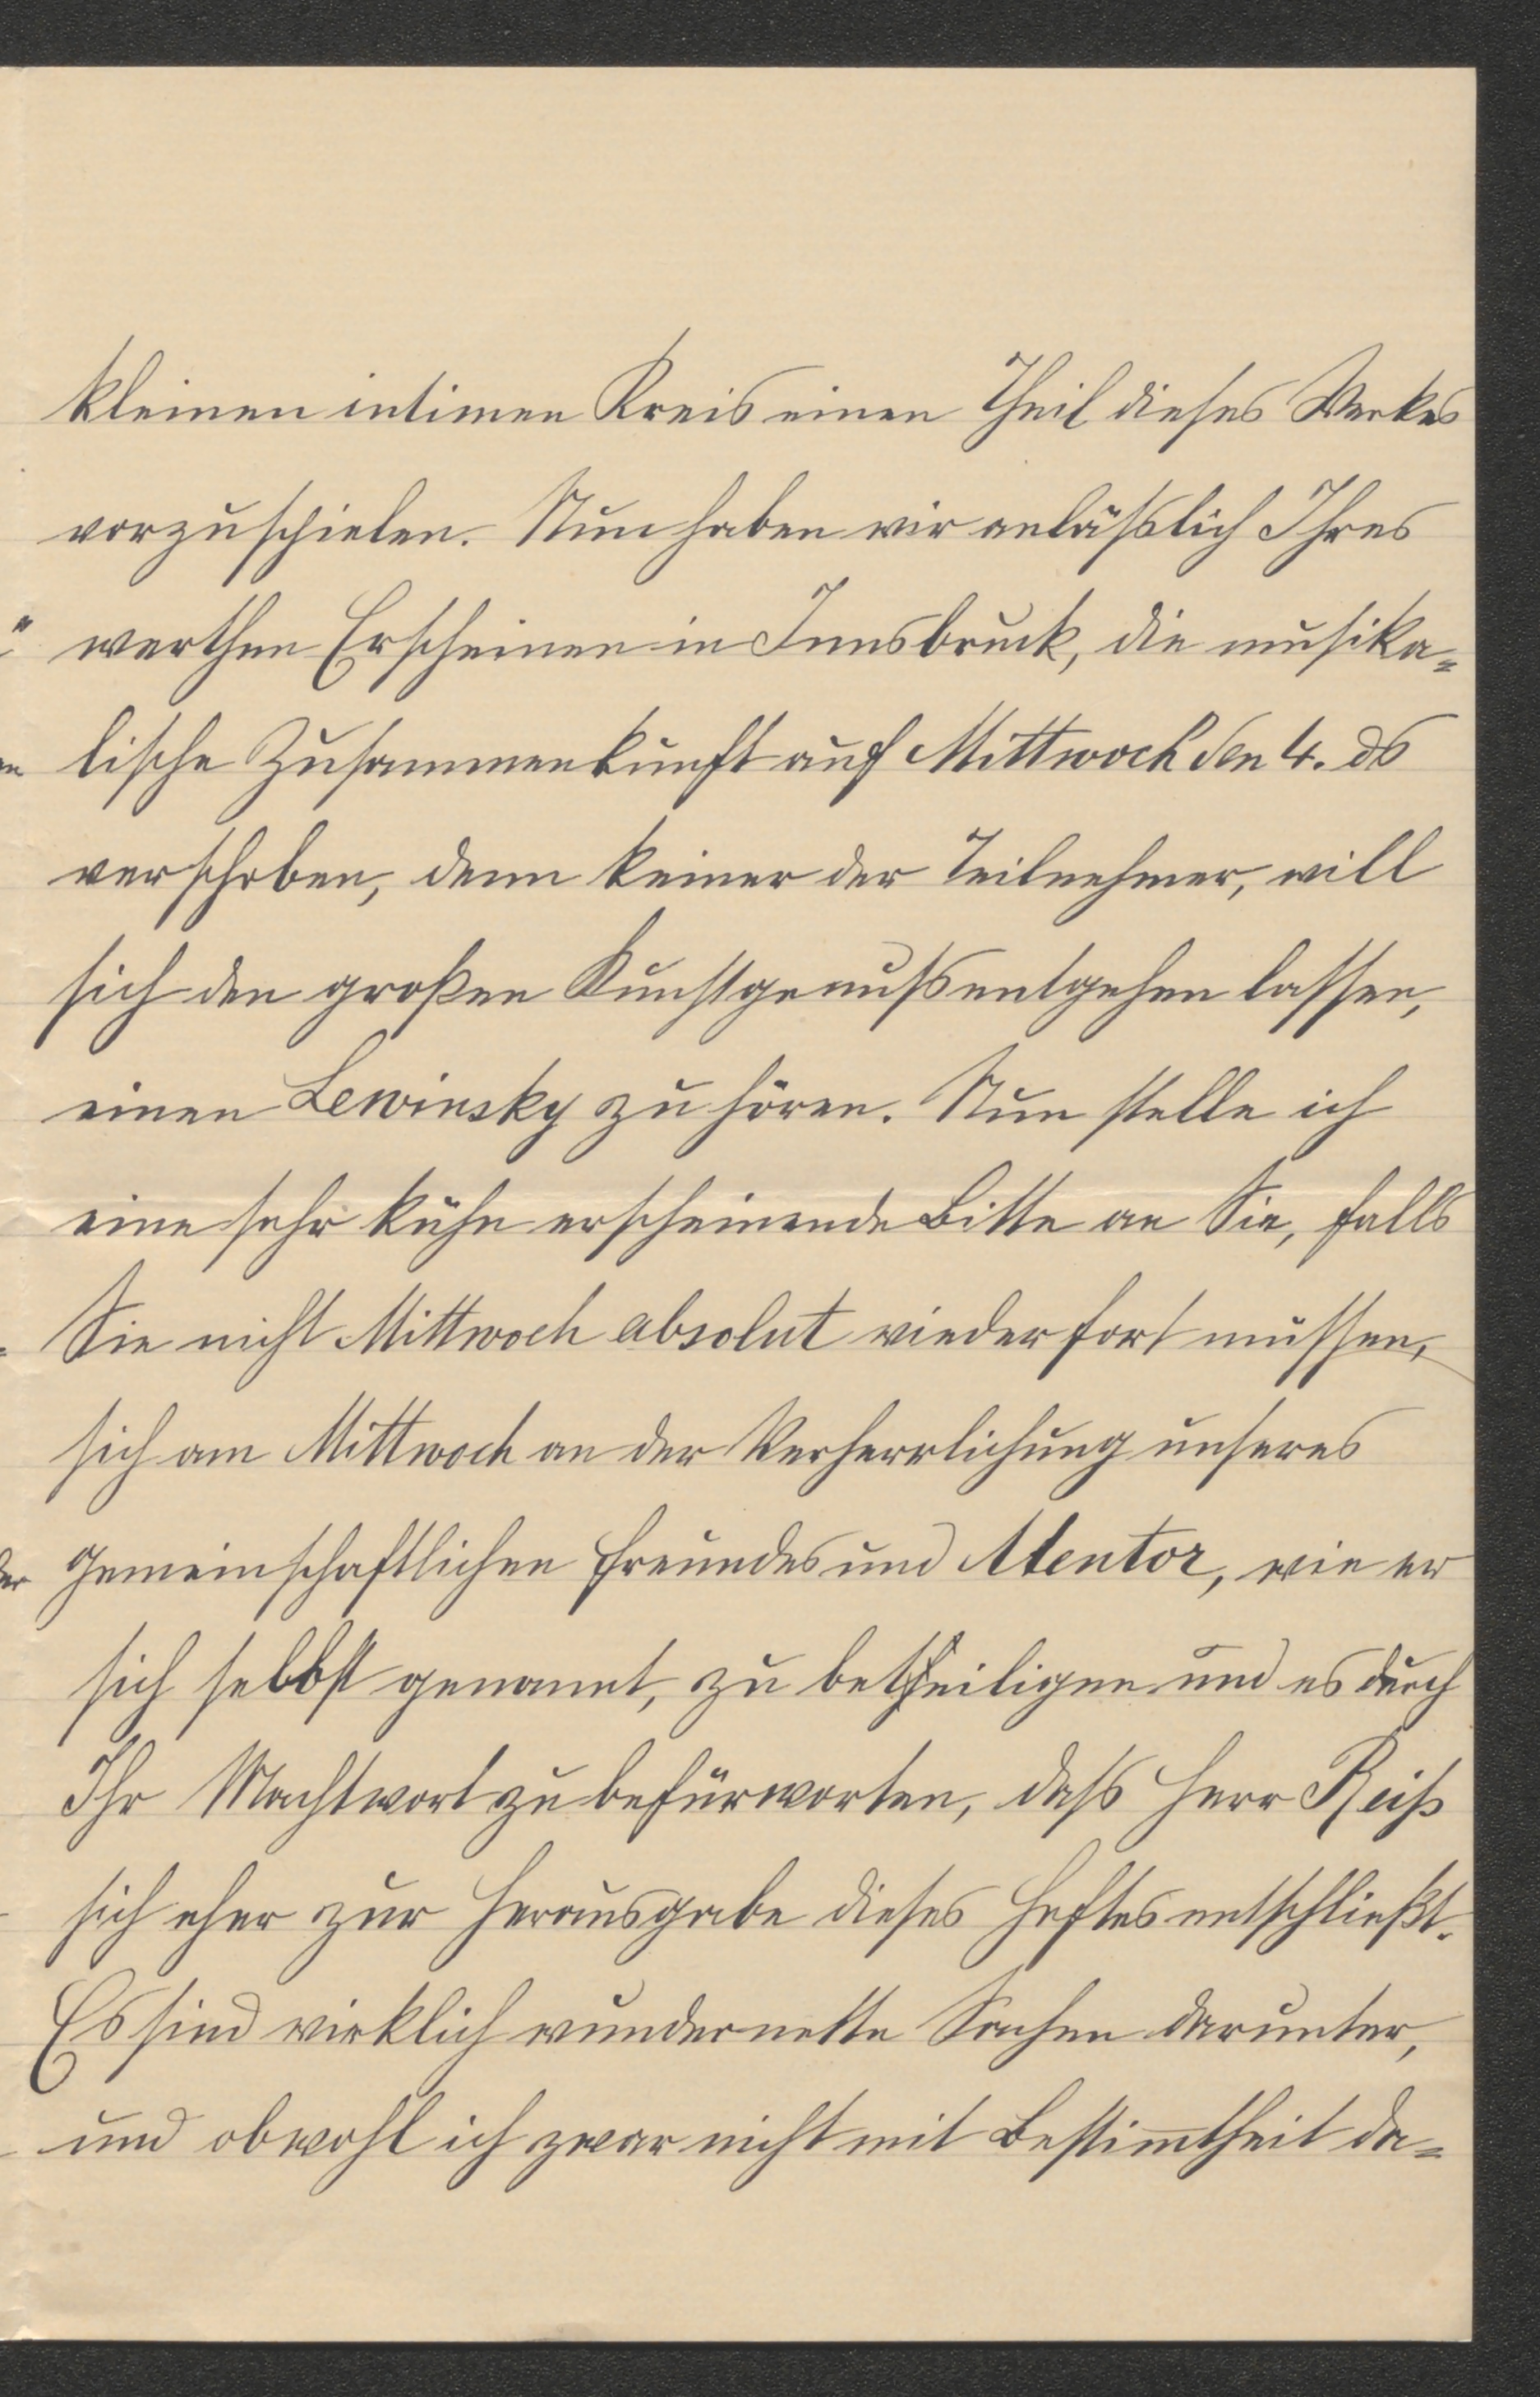 kleinen intimen Kreis einen Theil dieses Werkes
vorzuspielen. Nun haben wir anläßlich Ihres
werthen Erscheinen in Innsbruck, die musika=
lische Zusammenkunft auf Mittwoch den 4. ds
verschoben, denn keiner der Teilnehmer, will
sich den großen Kunstgenuß entgehen lassen,
einen Lewinsky zu hören. Nun stelle ich
eine sehr kühn erscheinende Bitte an Sie, falls
Sie nicht Mittwoch absolut wieder fort müssen,
sich am Mittwoch an der Verherrlichung unseres
gemeinschaftlichen Freundes und Mentor, wie er
sich selbst genannt, zu betheiligen und es durch
Ihr Machtwort zu befürworten, daß Herr Reiß
sich eher zur Herausgabe dieses Heftes entschließt.
Es sind wirklich wundernette Sachen darunter,
und obwohl ich zwar nicht mit Bestim̅theit da=